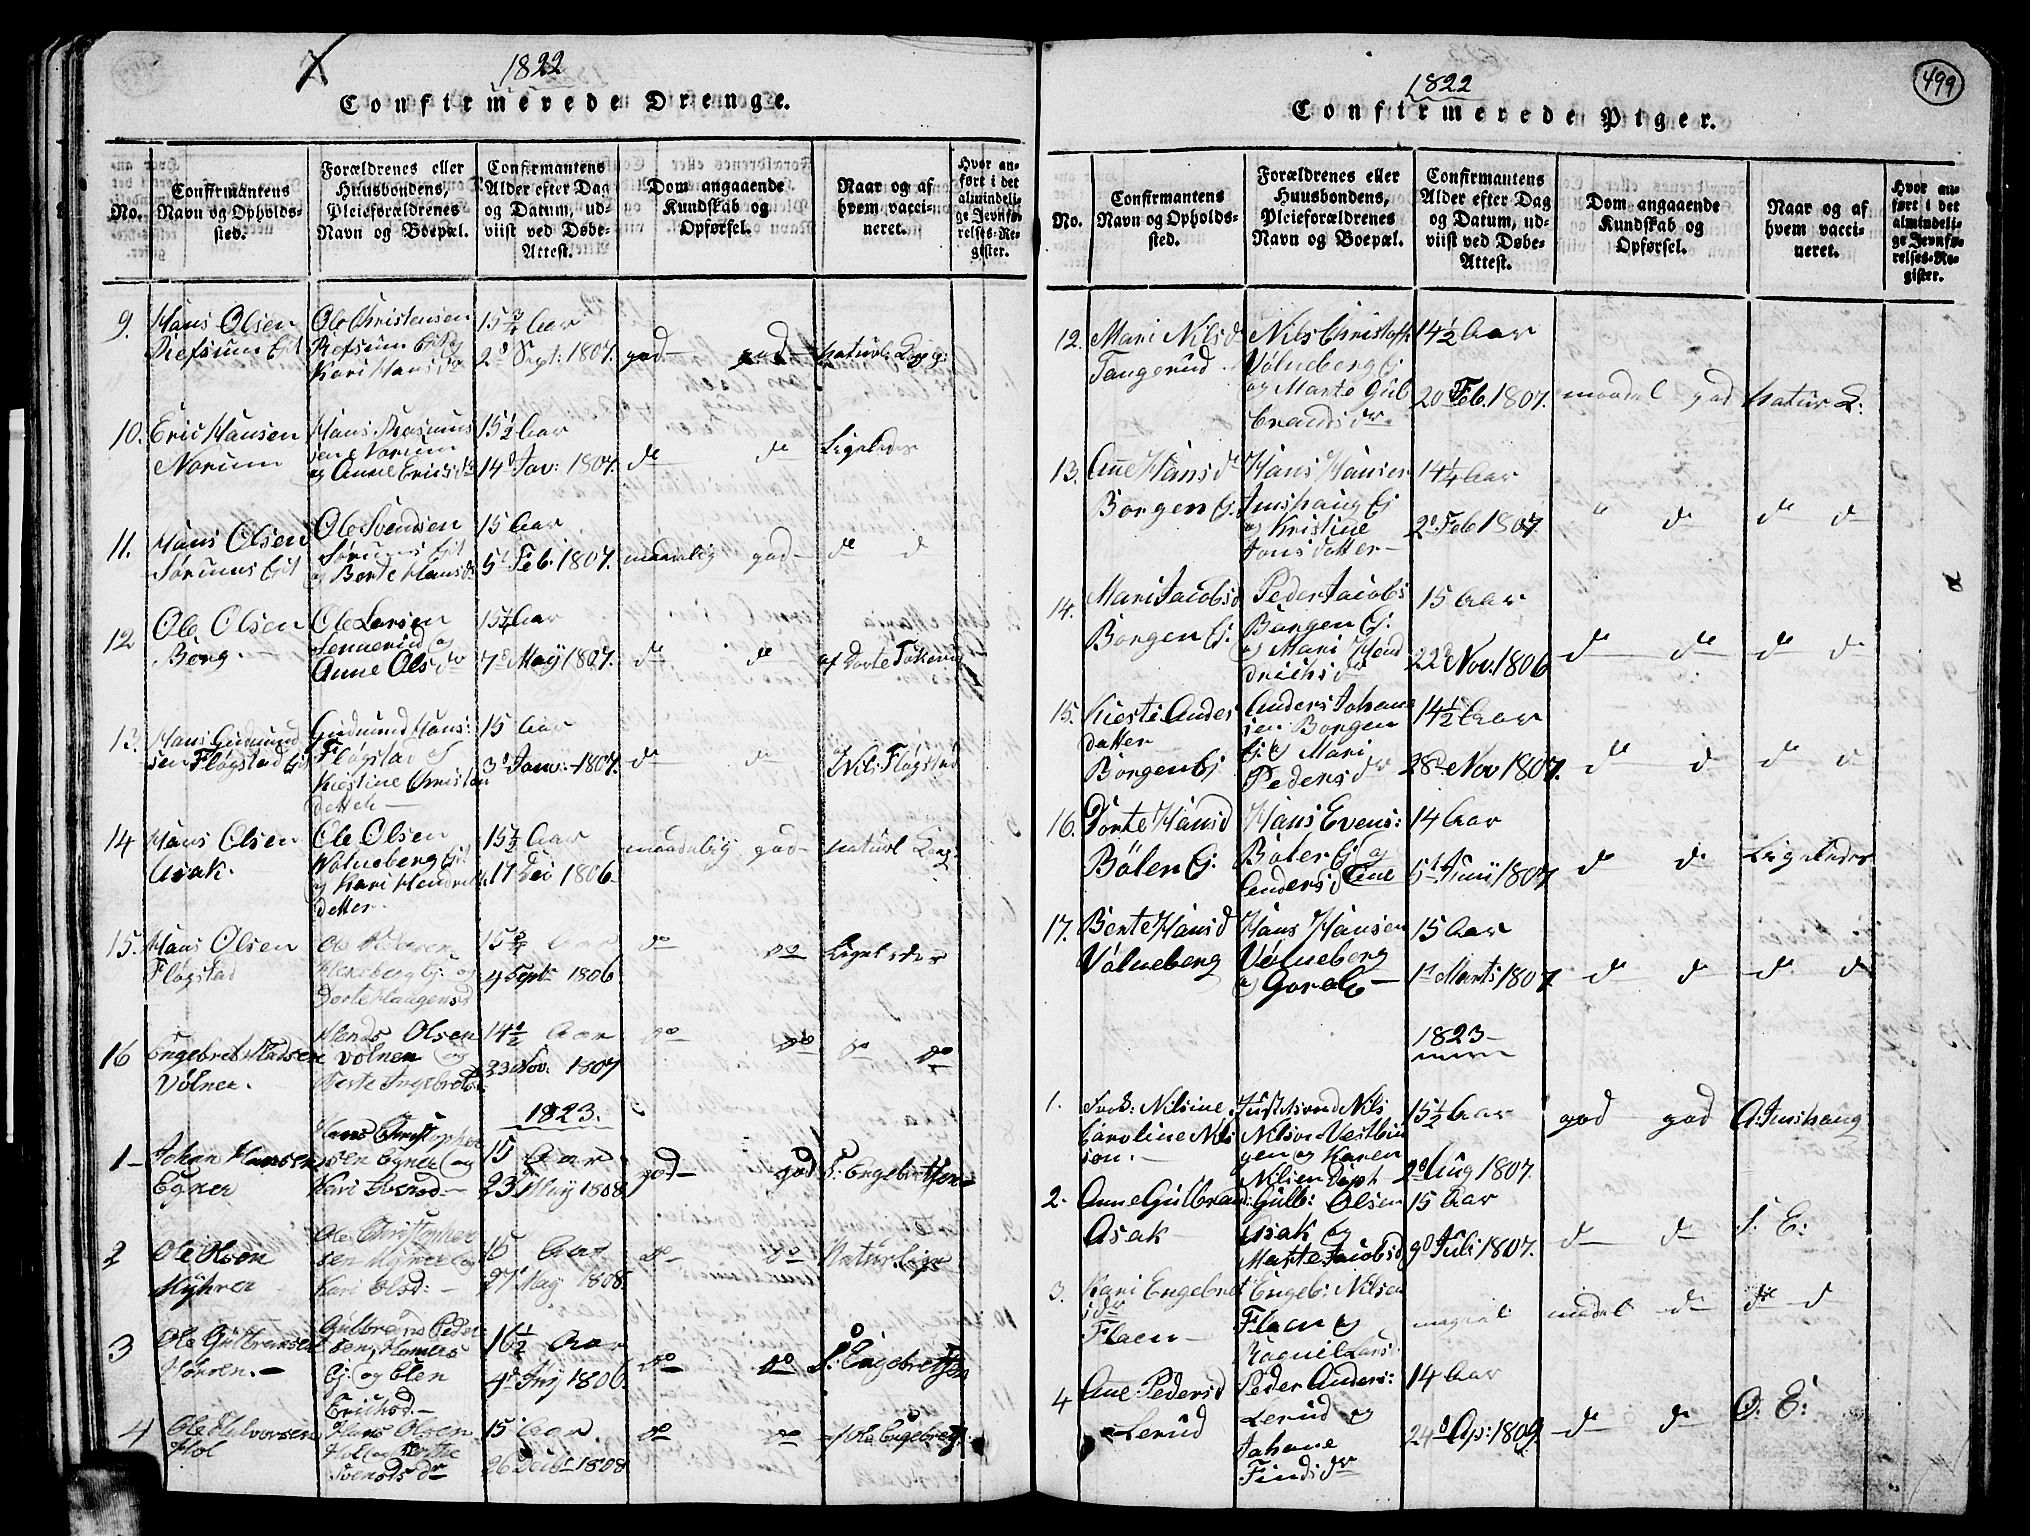 1822
Confirmerede Drenge.
No.
Confirmantens
Navn og Opholds-
sted.
Forældrenes eller
Huusbondens,
Pleieforældrenes
Navn og Boepæl.
Confirmantens
Alder efter Dag
og Datum, ud-
viist ved Døbe-
Attest.
Dom angaaende
Kundskab og
Opførsel.
Naar og af
hvem vacci-
neret.
Hvor an-
ført i det
almindeli-
ge Jevnfø-
relses-Re-
gister.
9. Hans Olsen
Refsum Eie
Ole Christensen
Refsum Eie og
Kari Hansdr
15 3/4 Aar
2d Sept: 1807. god god naturl: Kopp:
10. Eric Hansen
Norum
Hans Rasmus
sen Norum
og Anne Ericsdr
15 1/2 Aar
14d Jan: 1807. do do Ligeledes
11. Hans Olsen
Sørums Eie
Ole Svendsen
Sørums Eie
og Berte Hansd
15 Aar
5t Feb. 1807. maadelig god do d
12 Ole Olsen
Berg.
Ole Larsen
og
Anne Olsdr
15 1/4 Aar
7d May 1807. do do af Dorte
13. Hans Gudmund
sen Fløgstad Eie
Gudmund Hans:
Fløgstad og
Kiestine Christen
datter
15 Aar
3d Janu: 1807. d d Nils Fløgstad
14 Hans Olsen
Asak.
Ole Olsen
Wølneberg Eie
og Kari Hendrik
datter
15 1/2 Aar
17 Dec 1806. maadelig god naturl Kop:
15. Hans Olsen
Fløgstad
Ole Pedersen
Eie: og
Dorte Haagensd
15 3/4 Aar
4 Sept 1806. do do Ligeledes
16 Engebret Madsen
Vølner.
Mads Olsen
Vølner og
Berte Ingebretsd
14 1/2 Aar
23 Nov. 1807 do do do do
1823.
1 Johan Hansen
Egner
Hans Christopher
sen Egner og
Kari Evensd.
15 Aar
23 May 1808 god god S: Engebretsen
2 Ole Olsen
Myhrer
Ole Christopher
sen Myhrer og
Kari Olsd:
15 Aar
27 May 1808. do do Naturlige
3 Ole Gulbransen
Gulbrans Peder
sen
Ej: og Olen
Erichsd.
16 1/2 Aar
4d 1806. do do S: Engebretsen
4 Ole Halvorsen
Hol
Hans Olsen
Hol og Berthe
Svendsdr
15 Aar.
26 Decbr 1808 do do Ole Engebretz:
1822
499
Confirmerede Piger.
No.
Confirmantens
Navn og Opholds-
sted.
Forældrenes eller
Huusbondens,
Pleieforældrenes
Navn og Boepæl.
Confirmantens
Alder efter Dag
og Datum, ud-
viist ved Døbe-
Attest.
Dom angaaende
Kundskab og
Opførsel.
Naar og af
hvem vacci-
neret.
Hvor an-
ført i det
almindeli-
ge Jevnfø-
relses-Re-
gister.
12. Mari Nilsd
Tangerud.
Nils Christoph
Vølneberg Ej
og Marte Gul
brandsdr.
14 1/2 Aar
20 Feb. 1807. maadel god natur K:
13. Anne Hansd
Borgen Ej.
Hans Hansen
Imshaug Ej
og Kristine
Jonsdatter
14 1/4 Aar
2d Feb 1807 " do do do
14. Mari Jacobsd
Borgen Ej:
Peder Jacobs
Borgen Ej:
og Mari Hend
drichsdr
15 Aar
22d Nov. 1806 do do do d
15. Kiesti Anders
datter
Borgen Ej
Anders Johan
sen Borgen
Ej: og Mari
Pedersdr
14 1/2 Aar
28d Nov 1807. do d do d
16. Dorte Hansd
Bølen Ej:
Hans Evens:
Bøler Ej og
Andersd Ane
14 Aar
5t Juni 1807 d d Ligeledes
17. Berte Hansd
Vølneberg
Hans Hansen
Vølneberg
og Goroe
15 Aar
1d Marts 1807. d d d d
1823
1. Fred: Nilsine
Caroline Nils
søn.
Justitsraad Nils
Nilson Vestbin
gen og Karen
Nilsen Døpt
15 1/2 Aar
2d Aug 1807. god god O: Imshaug
2. Anne Gulbrand:
Asak
Gulb: Olsen
Asak og
Marte Jacobsd
15 Aar
9d Juli 1807. d d S. E:
3. Kari Engebret
sdr
Flaen
Engeb: Nilsen
Flaen og
Ragnil Lars
maadel d do d
4 Ane Pedersd
Lerud
Peder Anders:
Lerud og
Johane
Findsdr
14 Aar
24d Ap: 1809. d d O: E: